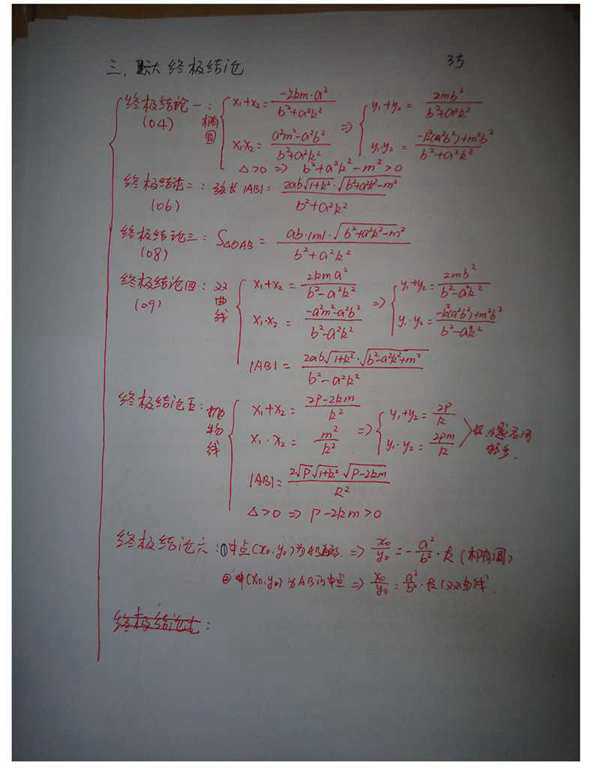 三、大终极结论 35
终极结论一: 椭圆 x₁+x₂ = -2km·a² / b²+a²k² ⇒ y₁+y₂ = 2mb² / b²+a²k²
(04) x₁x₂ = a²m²-a²b² / b²+a²k² y₁y₂ = -k²(a²b²)+m²b² / b²+a²k²
Δ>0 ⇒ b²+a²k²-m²>0
终极结论二: 弦长 |AB| = 2ab√1+k²·√b²+a²k²-m² / b²+a²k²
(06)
终极结论三: S△OAB = ab·|m|·√b²+a²k²-m² / b²+a²k²
(08)
终极结论四: 双曲线 x₁+x₂ = 2kma² / b²-a²k² ⇒ y₁+y₂ = 2mb² / b²-a²k²
(09) x₁·x₂ = -a²m²-a²b² / b²-a²k² y₁·y₂ = -k²(a²b²)+m²b² / b²-a²k²
|AB| = 2ab√1+k²·√b²-a²k²+m² / b²-a²k²
终极结论五: 抛物线 x₁+x₂ = 2p-2km / k² ⇒ y₁+y₂ = 2p / k
x₁·x₂ = m² / k² y₁·y₂ = 2pm / k
|AB| = 2√p√1+k²√p-2km / k²
Δ>0 ⇒ p-2km>0
终极结论六: ① 中点(x₀,y₀)为AB ⇒ x₀/y₀ = -a²/b²·k (椭圆)
② (x₀,y₀)为AB的中点 ⇒ x₀/y₀ = a²/b²·k (双曲线)
终极结论七: